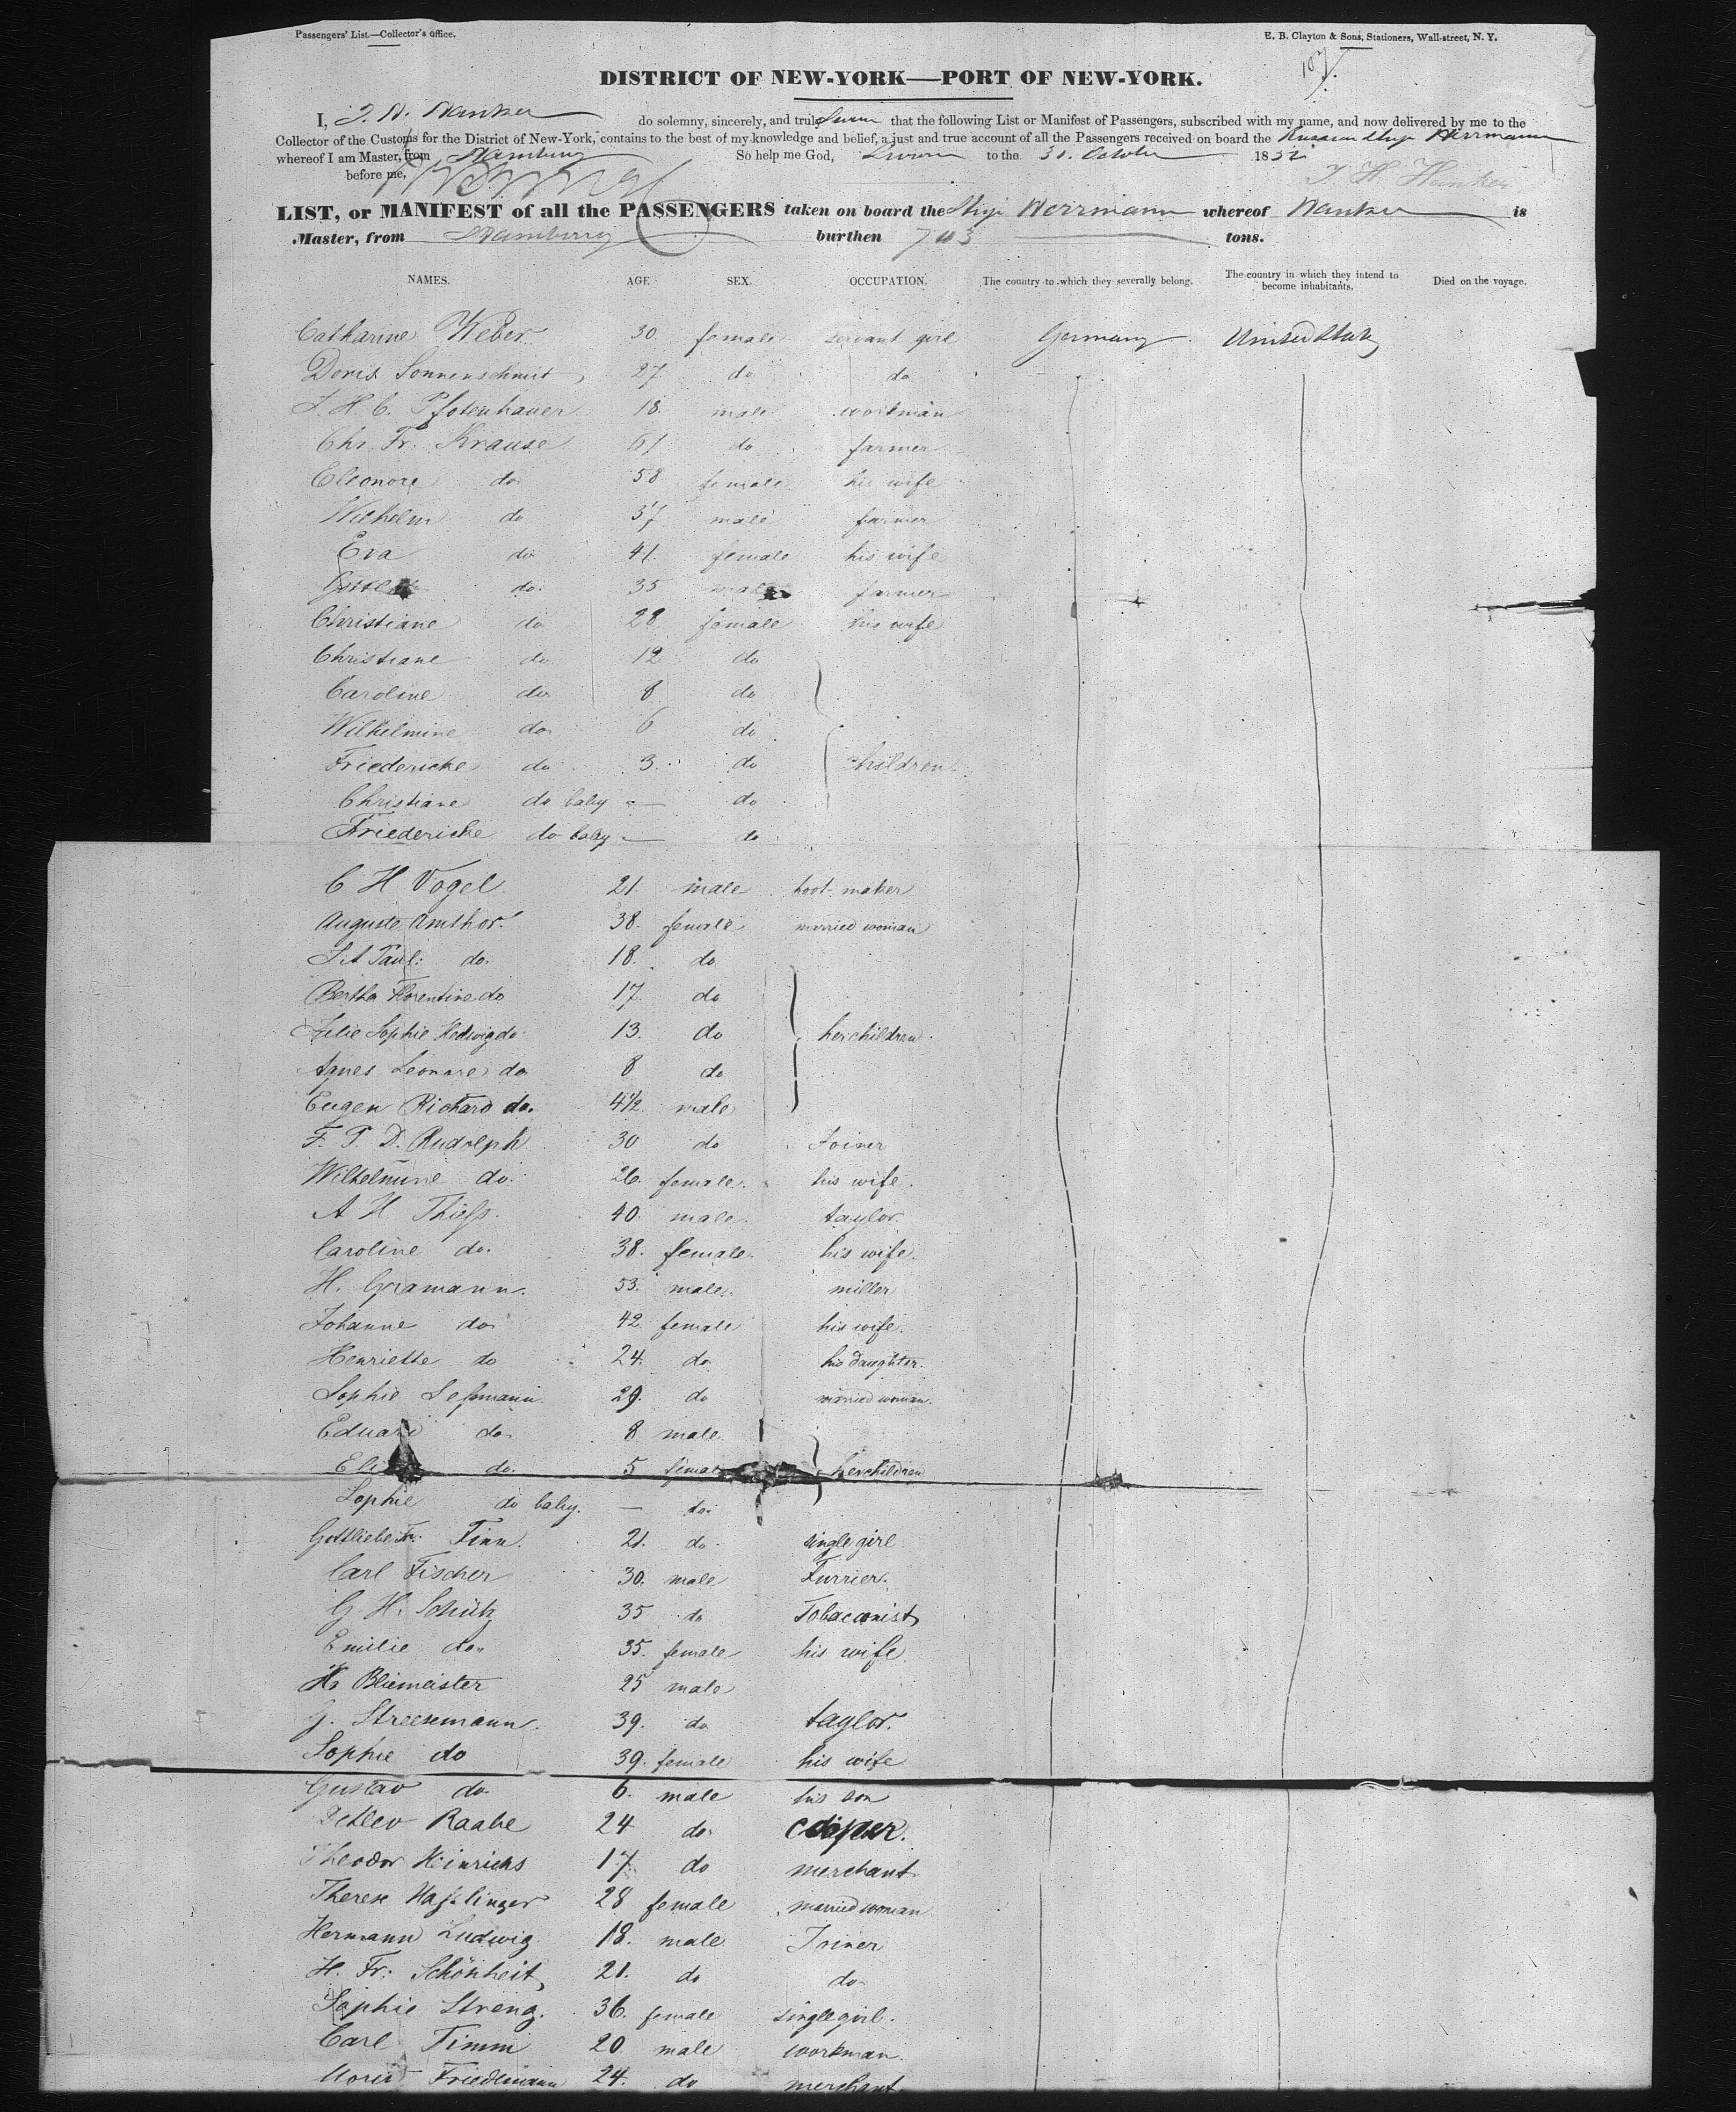 Passengers' List.—Collector's Office.
E. B. Clayton & Sons, Stationers, Wall-street, N. Y.
DISTRICT OF NEW-YORK—PORT OF NEW-YORK.
I, do solemny, sincerely, and truly Swear that the following List or Manifest of Passengers, subscribed with my name, and now delivered by me to the
Collector of the Customs for the District of New-York, contains to the best of my knowledge and belief, a just and true account of all the Passengers received on board the Russian Ship Herrmann
whereof I am Master, from Hamburg So help me God, Sworn to the 30. October 1852
before me,
LIST, or MANIFEST of all the PASSENGERS taken on board the Ship Herrmann whereof is
Master, from Hamburg burthen tons.
NAMES. AGE SEX. OCCUPATION. The country to which they severally belong. The country in which they intend to become inhabitants. Died on the voyage.
Catharine Weber 30. female servant girl Germany United States
Doris Sonnenschmit 27. do do
J. H. C. Pfotenhauer 18. male workman
Chr. Fr. Krause 61 do farmer
Eleonore do 58 female his wife
Wilhelm do 37 male farmer
Eva do 41. female his wife
do 35 male farmer
Christiane do 28 female his wife
Christiane do 12 do
Caroline do 8 do
Wilhelmine do 6 do
Friedericke do 3. do children
Christiane do baby — do
Friedericke do baby — do
C H Vogel 21. male boot-maker
Auguste Amthor. 38. female married woman
Paul: do. 18. do
Bertha Florentine do 17. do
Julie Sophie Hedwig do 13. do her children
Agnes Leonore do 8 do
Eugen Richard do. 4½. male
F. P. D. Rudolph 30 do Joiner
Wilhelmine do. 26. female his wife.
A H Thiess. 40. male. taylor.
Caroline do. 38. female. his wife.
H. Gramann. 53. male. miller
Johanne do 42. female his wife.
Henriette do 24. do his daughter.
Sophie Lessmann. 29. do married woman.
Eduard do. 8. male.
do. 5 female her children
Sophie do baby. — do.
Gottliebe Fr. Finn. 21. do. single girl
Carl Fischer 30. male Furrier.
G H. Schütz 35 do Tobaconist
Emilie do. 35. female his wife
Bliemeister 25 male
G. Streesemann. 39. do taylor.
Sophie do 39. female his wife
Gustav do. 6. male his son
Detlev Raabe 24 do. cooper.
Theodor Hinrichs 17. do merchant
Therese Hasslinger 28 female married woman
Hermann Ludwig. 18. male Joiner
H. Fr: Schönheit 21. do do
Sophie Streng. 36. female single girl.
Carl Timm 20 male workman.
Moritz Friedmann 24. do merchant.